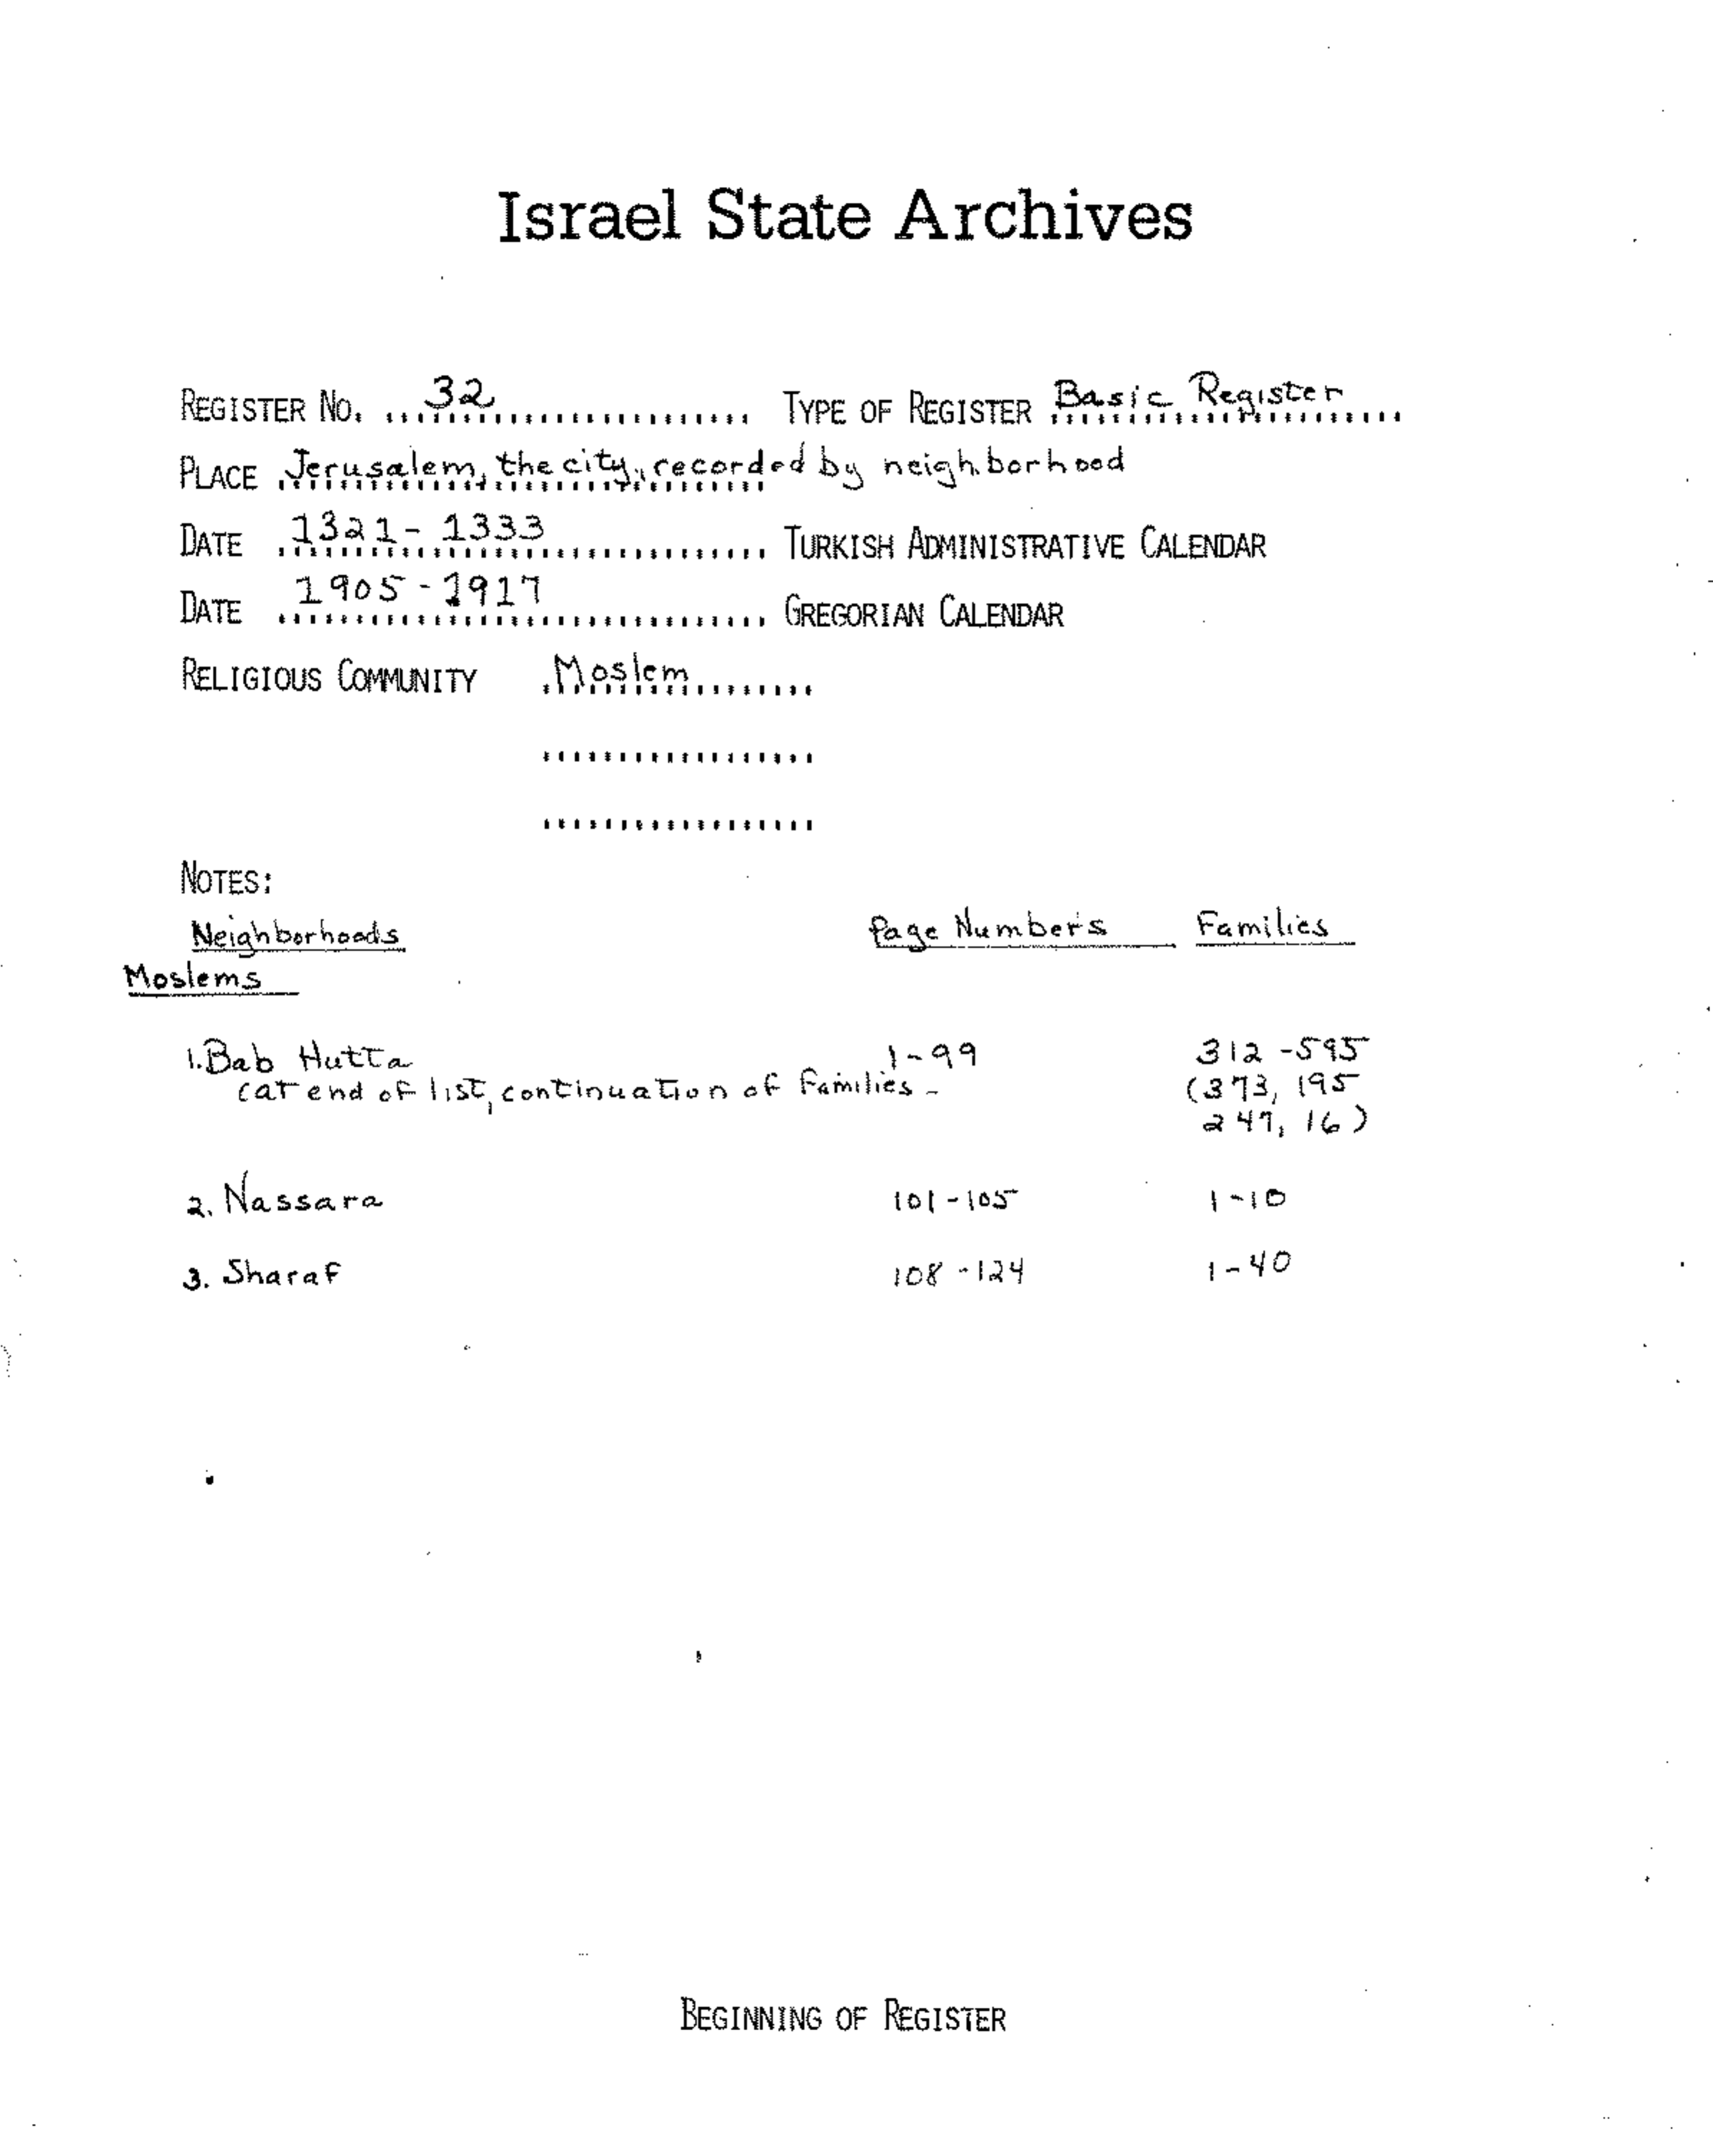 Israel State Archives
REGISTER NO. 32 TYPE OF REGISTER Basic Register
PLACE Jerusalem, the city, recorded by neighborhood
DATE 1321- 1333 TURKISH ADMINISTRATIVE CALENDAR
DATE 1905-1917 GREGORIAN CALENDAR
RELIGIOUS COMMUNITY Moslem
NOTES:
Neighborhoods Page Numbers Families
Moslems
1. Bab Hutta 1-99 312-595
(at end of list, continuation of families - (373, 195
247, 16)
2. Nassara 101-105 1-10
3. Sharaf 108-124 1-40
BEGINNING OF REGISTER